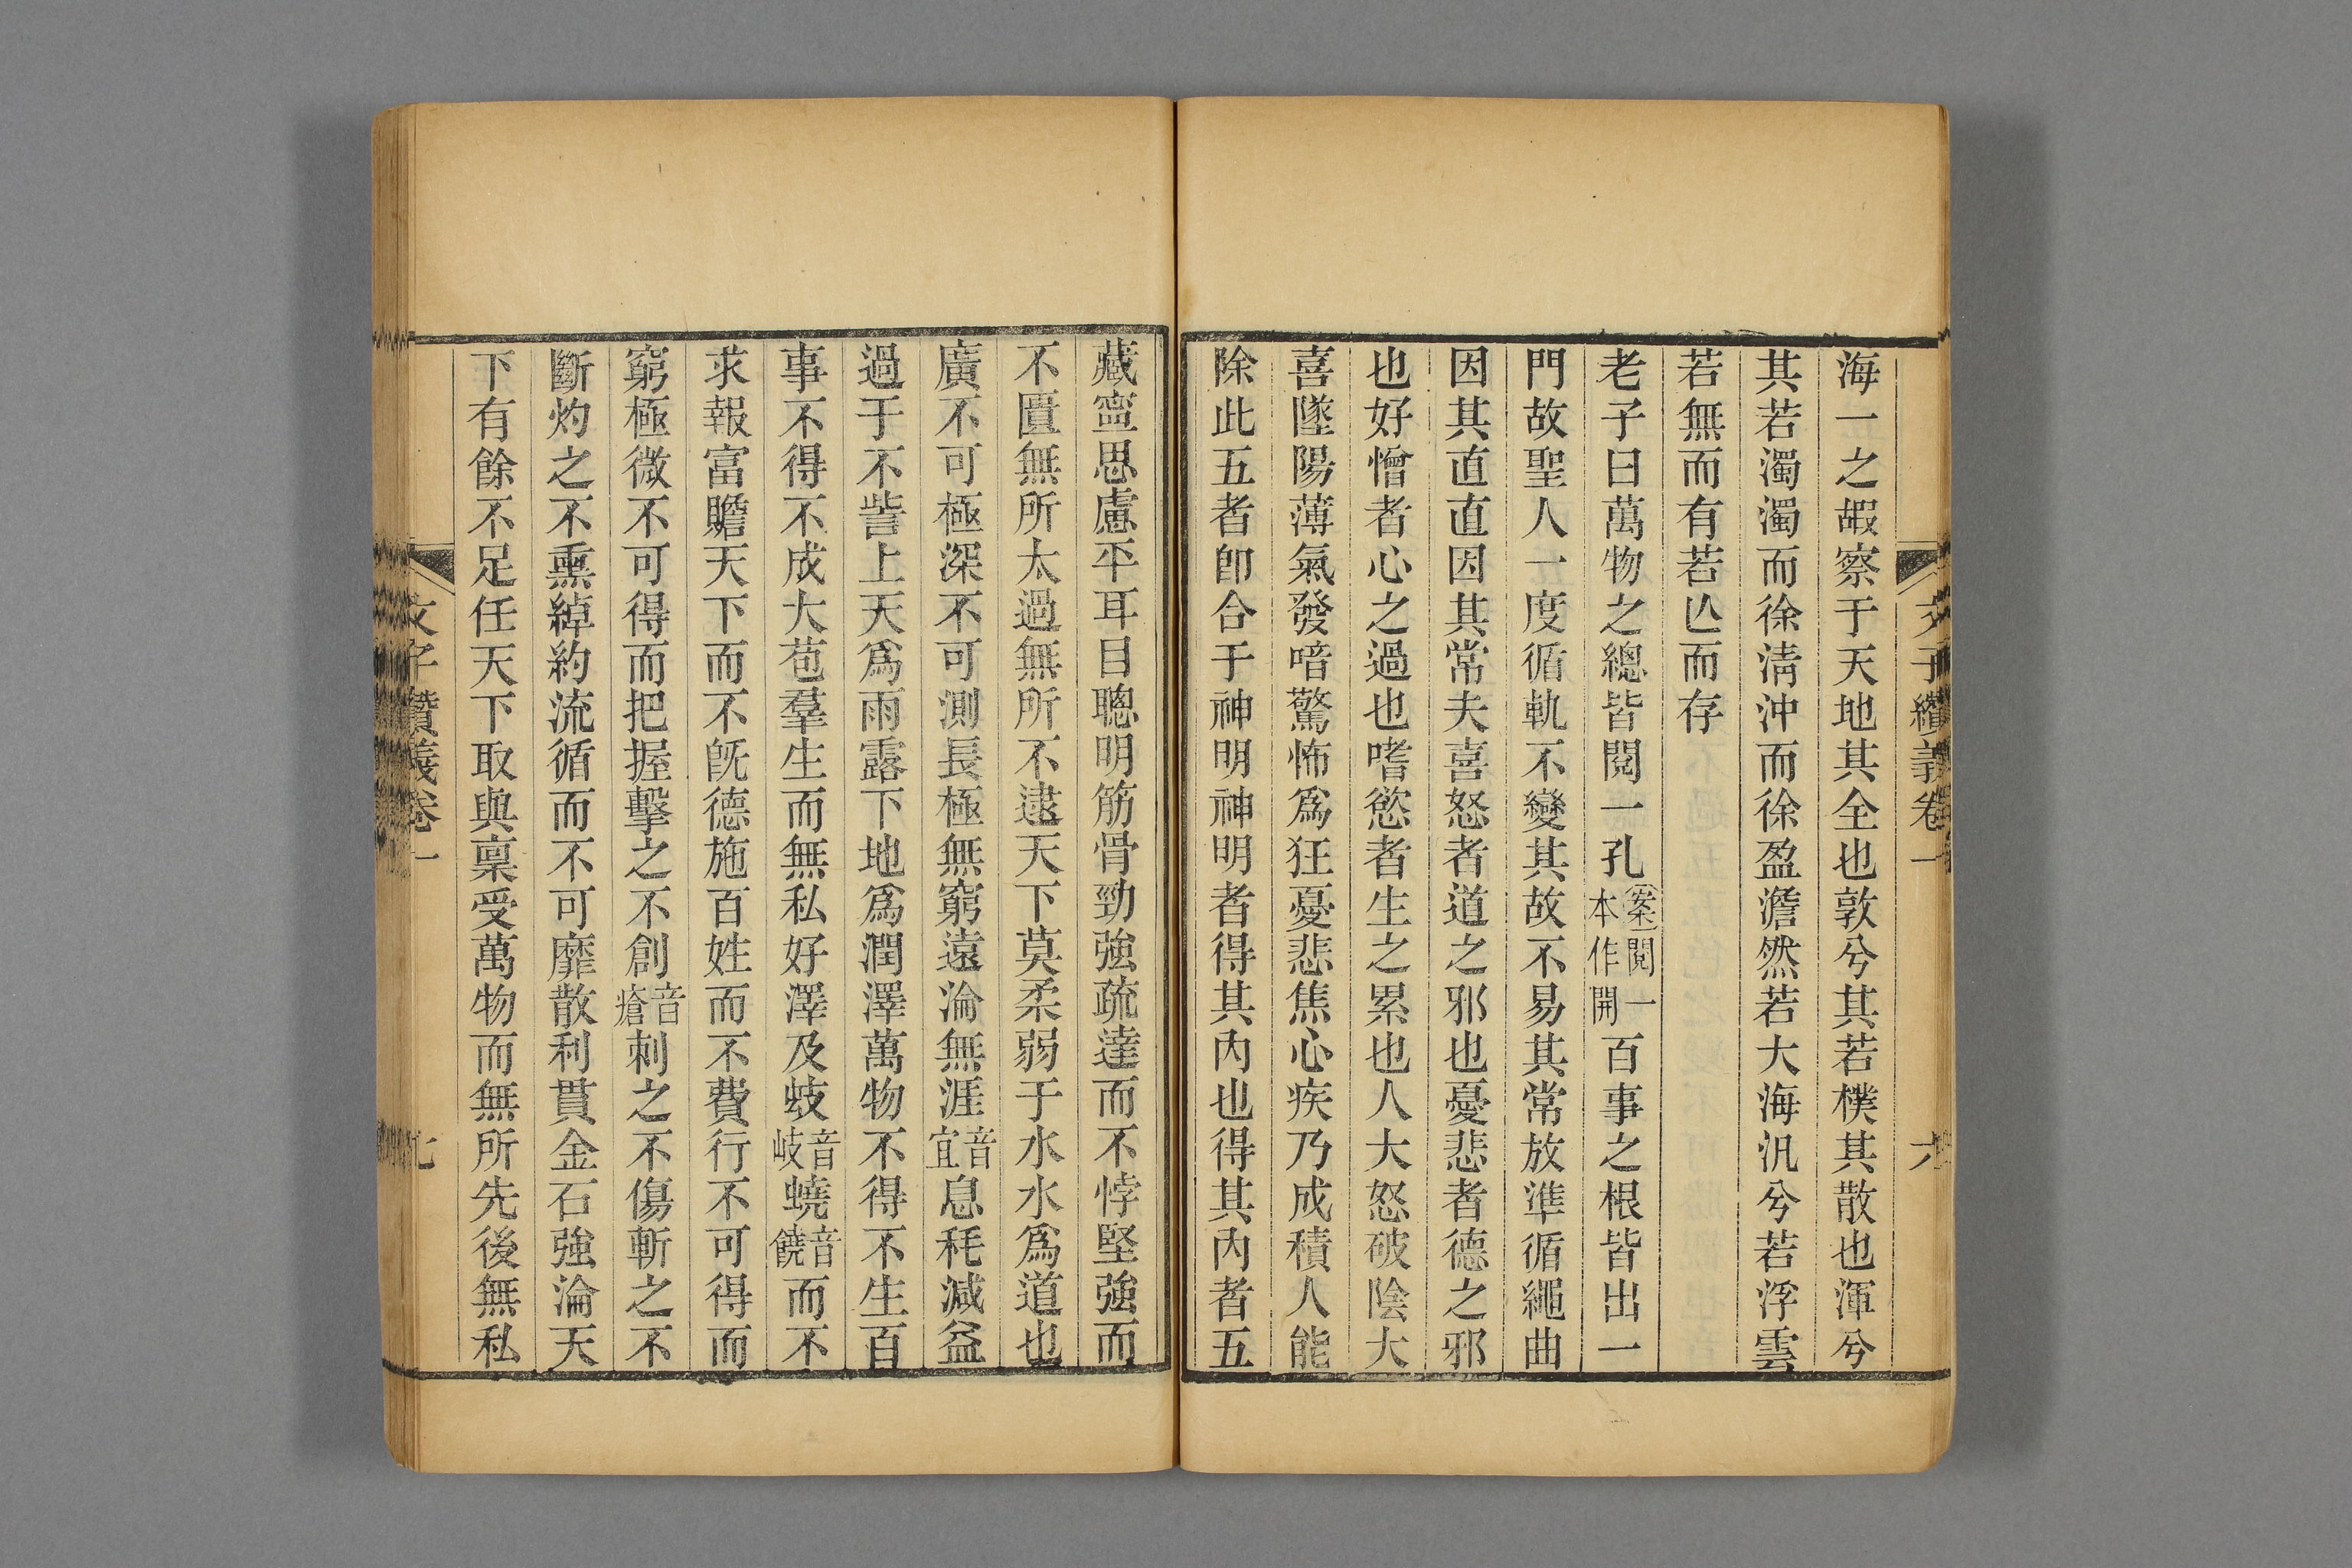 文子纘義卷一 六
海一之嘏察于天地其全也敦兮其若樸其散也渾兮
其若濁濁而徐淸沖而徐盈澹然若大海汎兮若浮雲
若無而有若亾而存
老子曰萬物之總皆閱一孔案閱一本作開百事之根皆出一
門故聖人一度循軌不變其故不易其常放準循繩曲
因其直直因其常夫喜怒者道之邪也憂悲者德之邪
也好憎者心之過也嗜慾者生之累也人大怒破陰大
喜墜陽薄氣發喑驚怖爲狂憂悲焦心疾乃成積人能
除此五者卽合于神明神明者得其內也得其內者五
藏寧思慮平耳目聰明筋骨勁強疏達而不悖堅強而
不匱無所太過無所不逮天下莫柔弱于水水爲道也
廣不可極深不可測長極無窮遠淪無涯音宜息耗減益
過于不訾上天爲雨露下地爲潤澤萬物不得不生百
事不得不成大苞羣生而無私好澤及蚑音岐蟯音饒而不
求報富贍天下而不旣德施百姓而不費行不可得而
窮極微不可得而把握擊之不創音瘡刺之不傷斬之不
斷灼之不熏綽約流循而不可靡散利貫金石強淪天
下有餘不足任天下取與稟受萬物而無所先後無私
文子纘義卷一 七